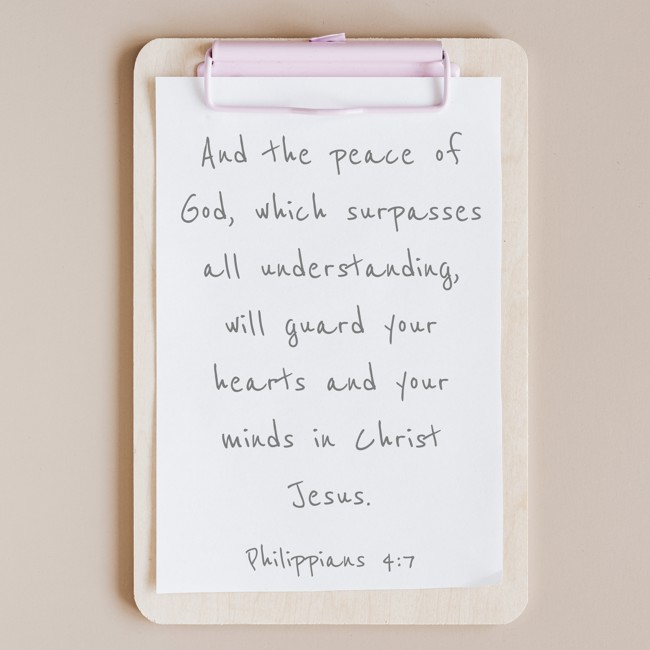 And the peace of
God, which surpasses
all understanding,
will guard your
hearts and your
minds in Christ
Jesus.
Philippians 4:7